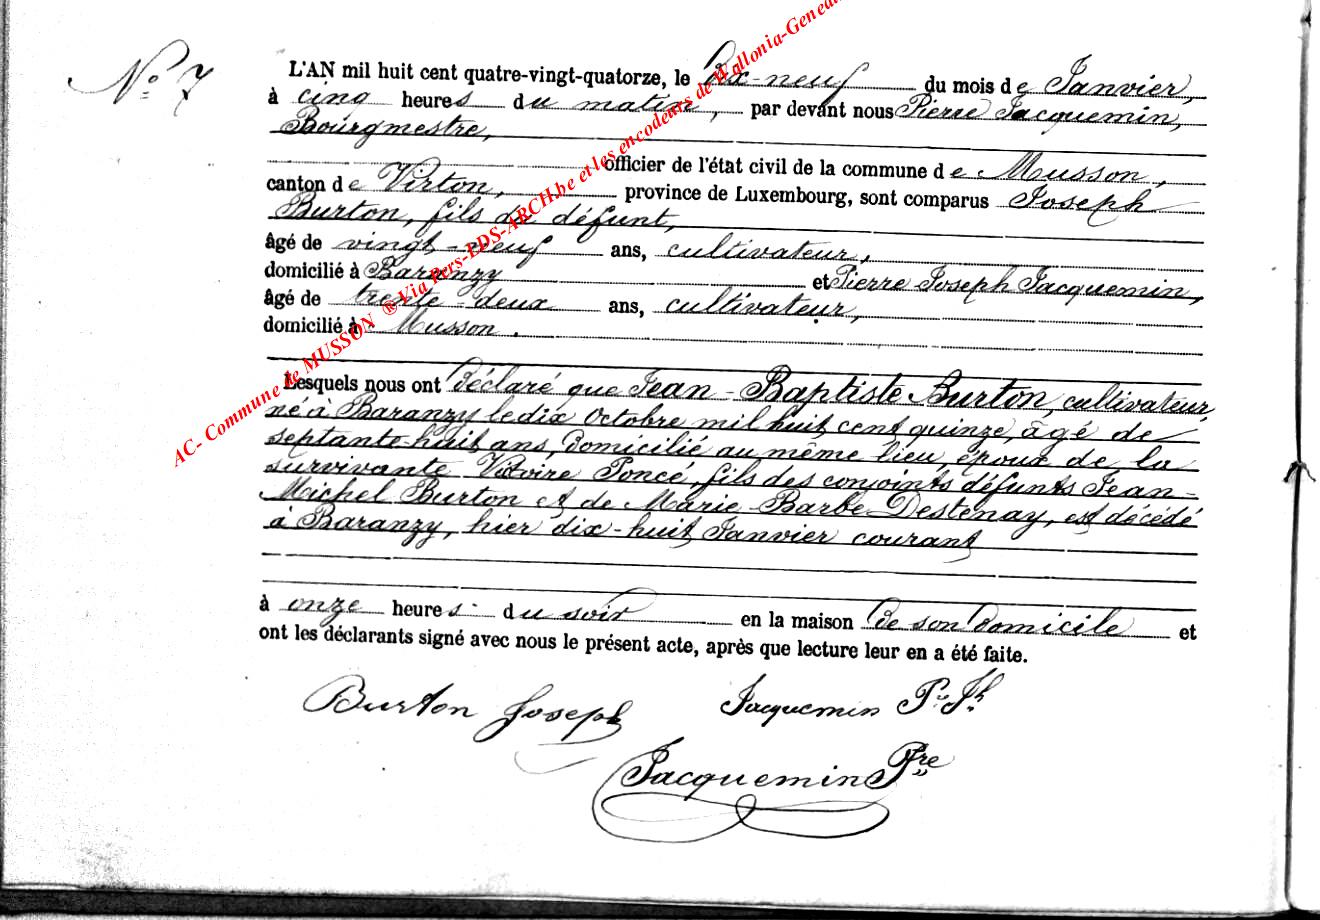 N° 7
L'AN mil huit cent quatre-vingt-quatorze, le dix-neuf du mois de Janvier,
à cinq heures du matin, par devant nous Pierre Jacquemin,
Bourgmestre,
officier de l'état civil de la commune de Musson,
canton de Virton, province de Luxembourg, sont comparus Joseph
Burton, fils du défunt,
âgé de vingt-neuf ans, cultivateur,
domicilié à Baranzy et Pierre Joseph Jacquemin,
âgé de trente deux ans, cultivateur,
domicilié à Musson.
Lesquels nous ont déclaré que Jean-Baptiste Burton, cultivateur,
né à Baranzy le dix Octobre mil huit cent quinze, âgé de
septante-huit ans, domicilié au même lieu, époux de la
survivante Victoire Poncé, fils des conjoints défunts Jean-
Michel Burton et de Marie-Barbe Destenay, est décédé
à Baranzy, hier dix-huit Janvier courant
à onze heures du soir en la maison de son domicile et
ont les déclarants signé avec nous le présent acte, après que lecture leur en a été faite.
Burton Joseph Jacquemin Pre Jh
Jacquemin Pre
AC- Commune de MUSSON ® Via Pers-EDS-ARCH.be et les encodeurs de Wallonia-Genea